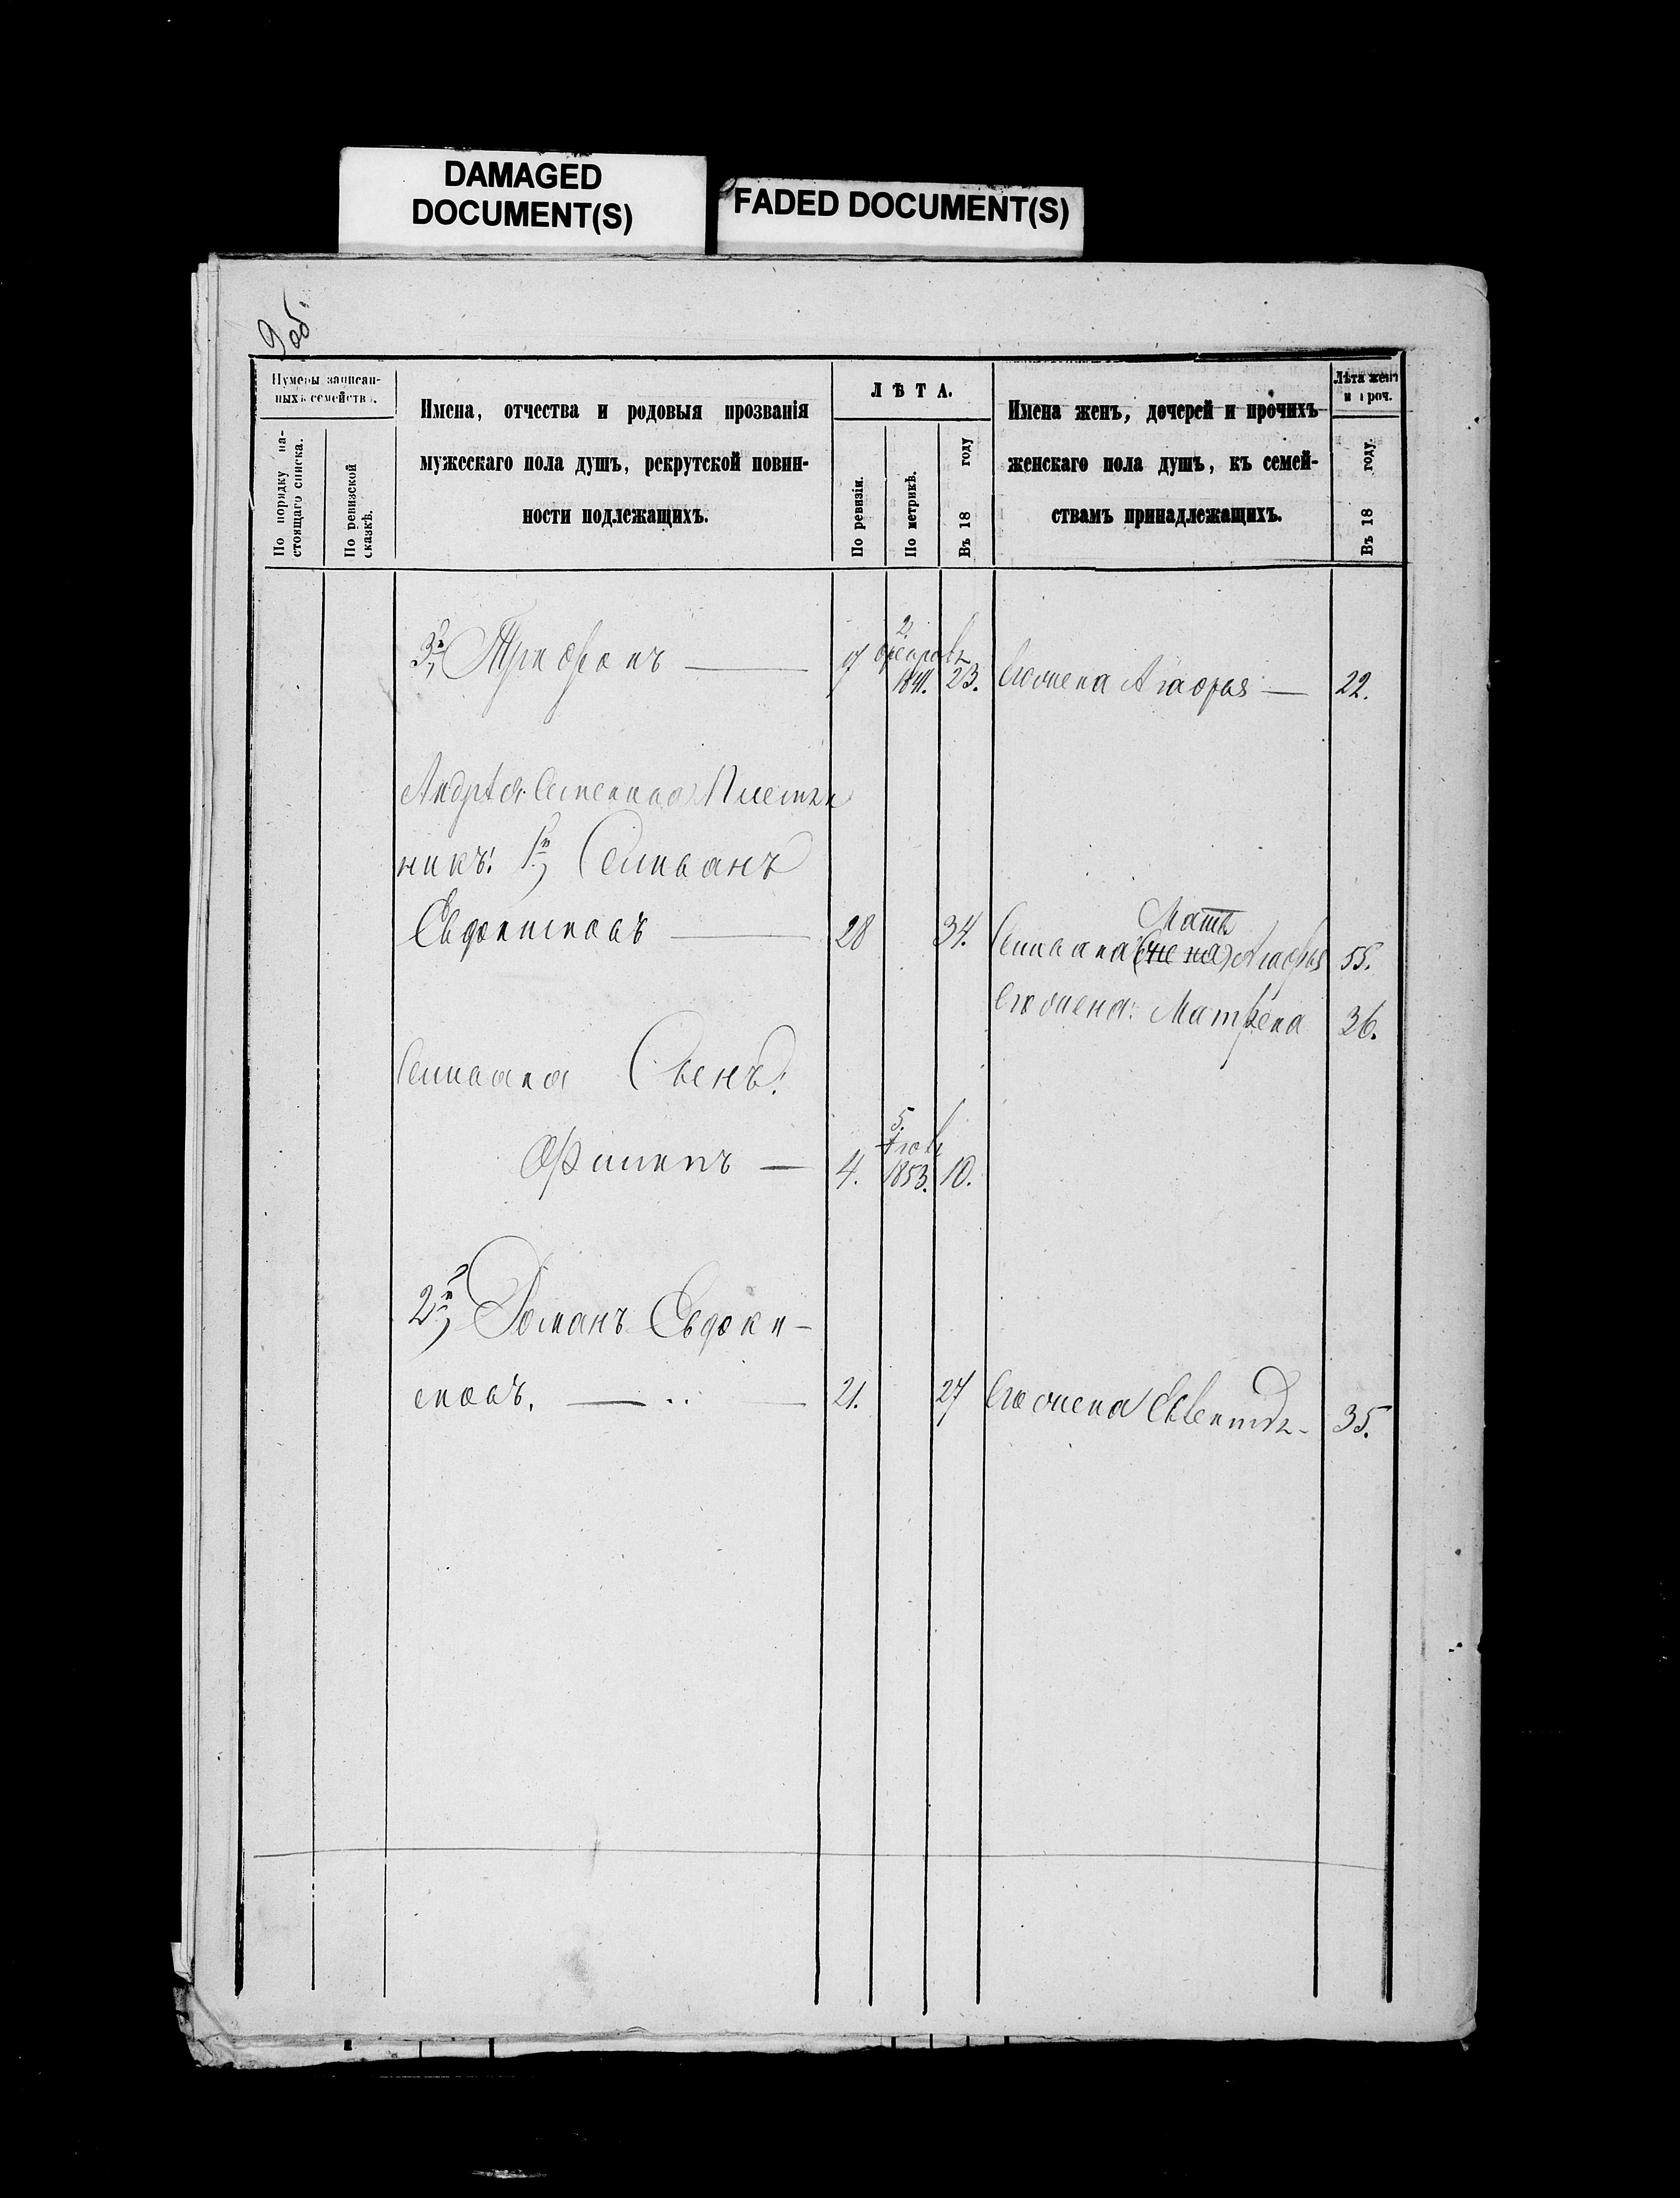 DAMAGED
DOCUMENT(S)
FADED DOCUMENT(S)
9 об.
Нумеры записан-
ныхъ семействъ.
По порядку на-
стоящаго списка.
По ревизской
сказкѣ.
Имена, отчества и родовыя прозванія
мужескаго пола душъ, рекрутской повин-
ности подлежащихъ.
ЛѢТА.
По ревизіи.
По метрикѣ.
Въ 18 году
Имена женъ, дочерей и прочихъ
женскаго пола душъ, къ семей-
ствамъ принадлежащихъ.
Лѣта женъ
и проч.
Въ 18 году.
2
3й, Трифонъ — 17 февраль
1841. 23. Его жена Агафья — 22.
Андрея Семенова Племян
никъ: 1й, Селиванъ
Мать
Евдокимовъ — 28 34. Селивана Агафья 55.
Его жена: Матрена 36.
Селивана Сынъ:
5.
Филипъ — 4. 1853. 10.
2й, Романъ Евдоки-
мовъ. — 21. 27 Его жена 35.